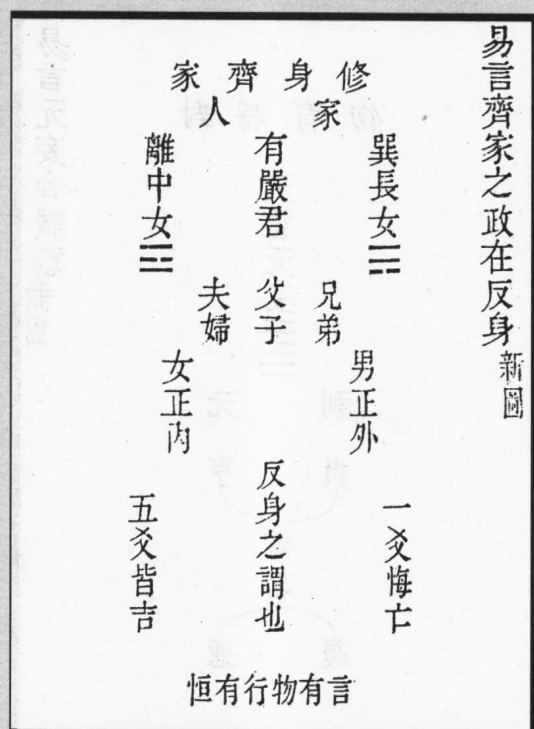 易言齊家之政在反身 新圖
修身齊家
家人
巽長女☴
有嚴君
離中女☲
兄弟
父子
夫婦
男正外
女正內
反身之謂也
一爻悔亡
五爻皆吉
言有物行有恒